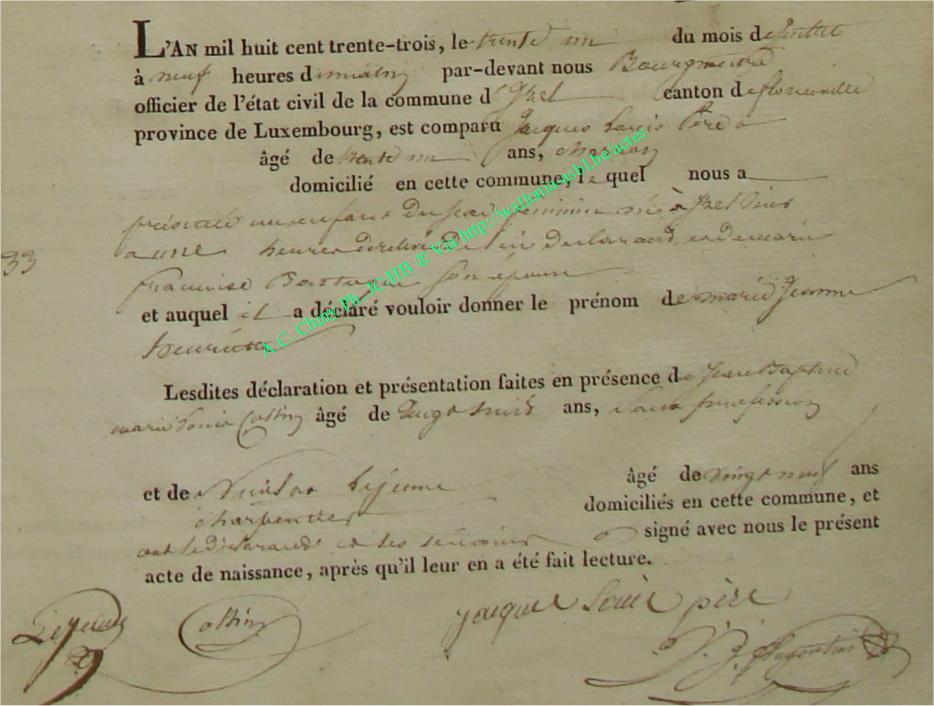 L'AN mil huit cent trente-trois, le trente un du mois de juillet
à neuf heures du matin par-devant nous Bourgmestre
officier de l'état civil de la commune d'Izel canton de florenville
province de Luxembourg, est comparu Jacques Louis Père
âgé de trente un ans,
domicilié en cette commune, lequel nous a
présenté un enfant du sexe féminin né à Izel
a une heure de lui declarant et de marie
francoise son épouse
33
et auquel il a déclaré vouloir donner le prénom de marie Jeanne
henriette
Lesdites déclaration et présentation faites en présence de Jean Baptiste
marie Louis Collin âgé de vingt huit ans, sans profession
et de Nicolas Lejeune âgé de vingt neuf ans
charpentier domiciliés en cette commune, et
ont le declarant et les temoins signé avec nous le présent
acte de naissance, après qu'il leur en a été fait lecture.
Lejeune Collin jacque Louis père
J. J.
A.C. Chiny Ph. R-HB ® Via http://walloniaasbl.be/actes